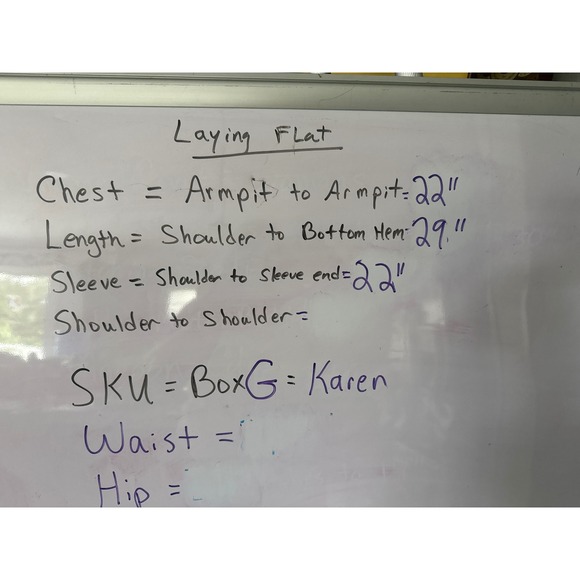 Laying Flat
Chest = Armpit to Armpit= 22"
Length = Shoulder to Bottom Hem= 29."
Sleeve = Shoulder to Sleeve end= 22"
Shoulder to Shoulder=
SKU = BoxG = Karen
Waist =
Hip =